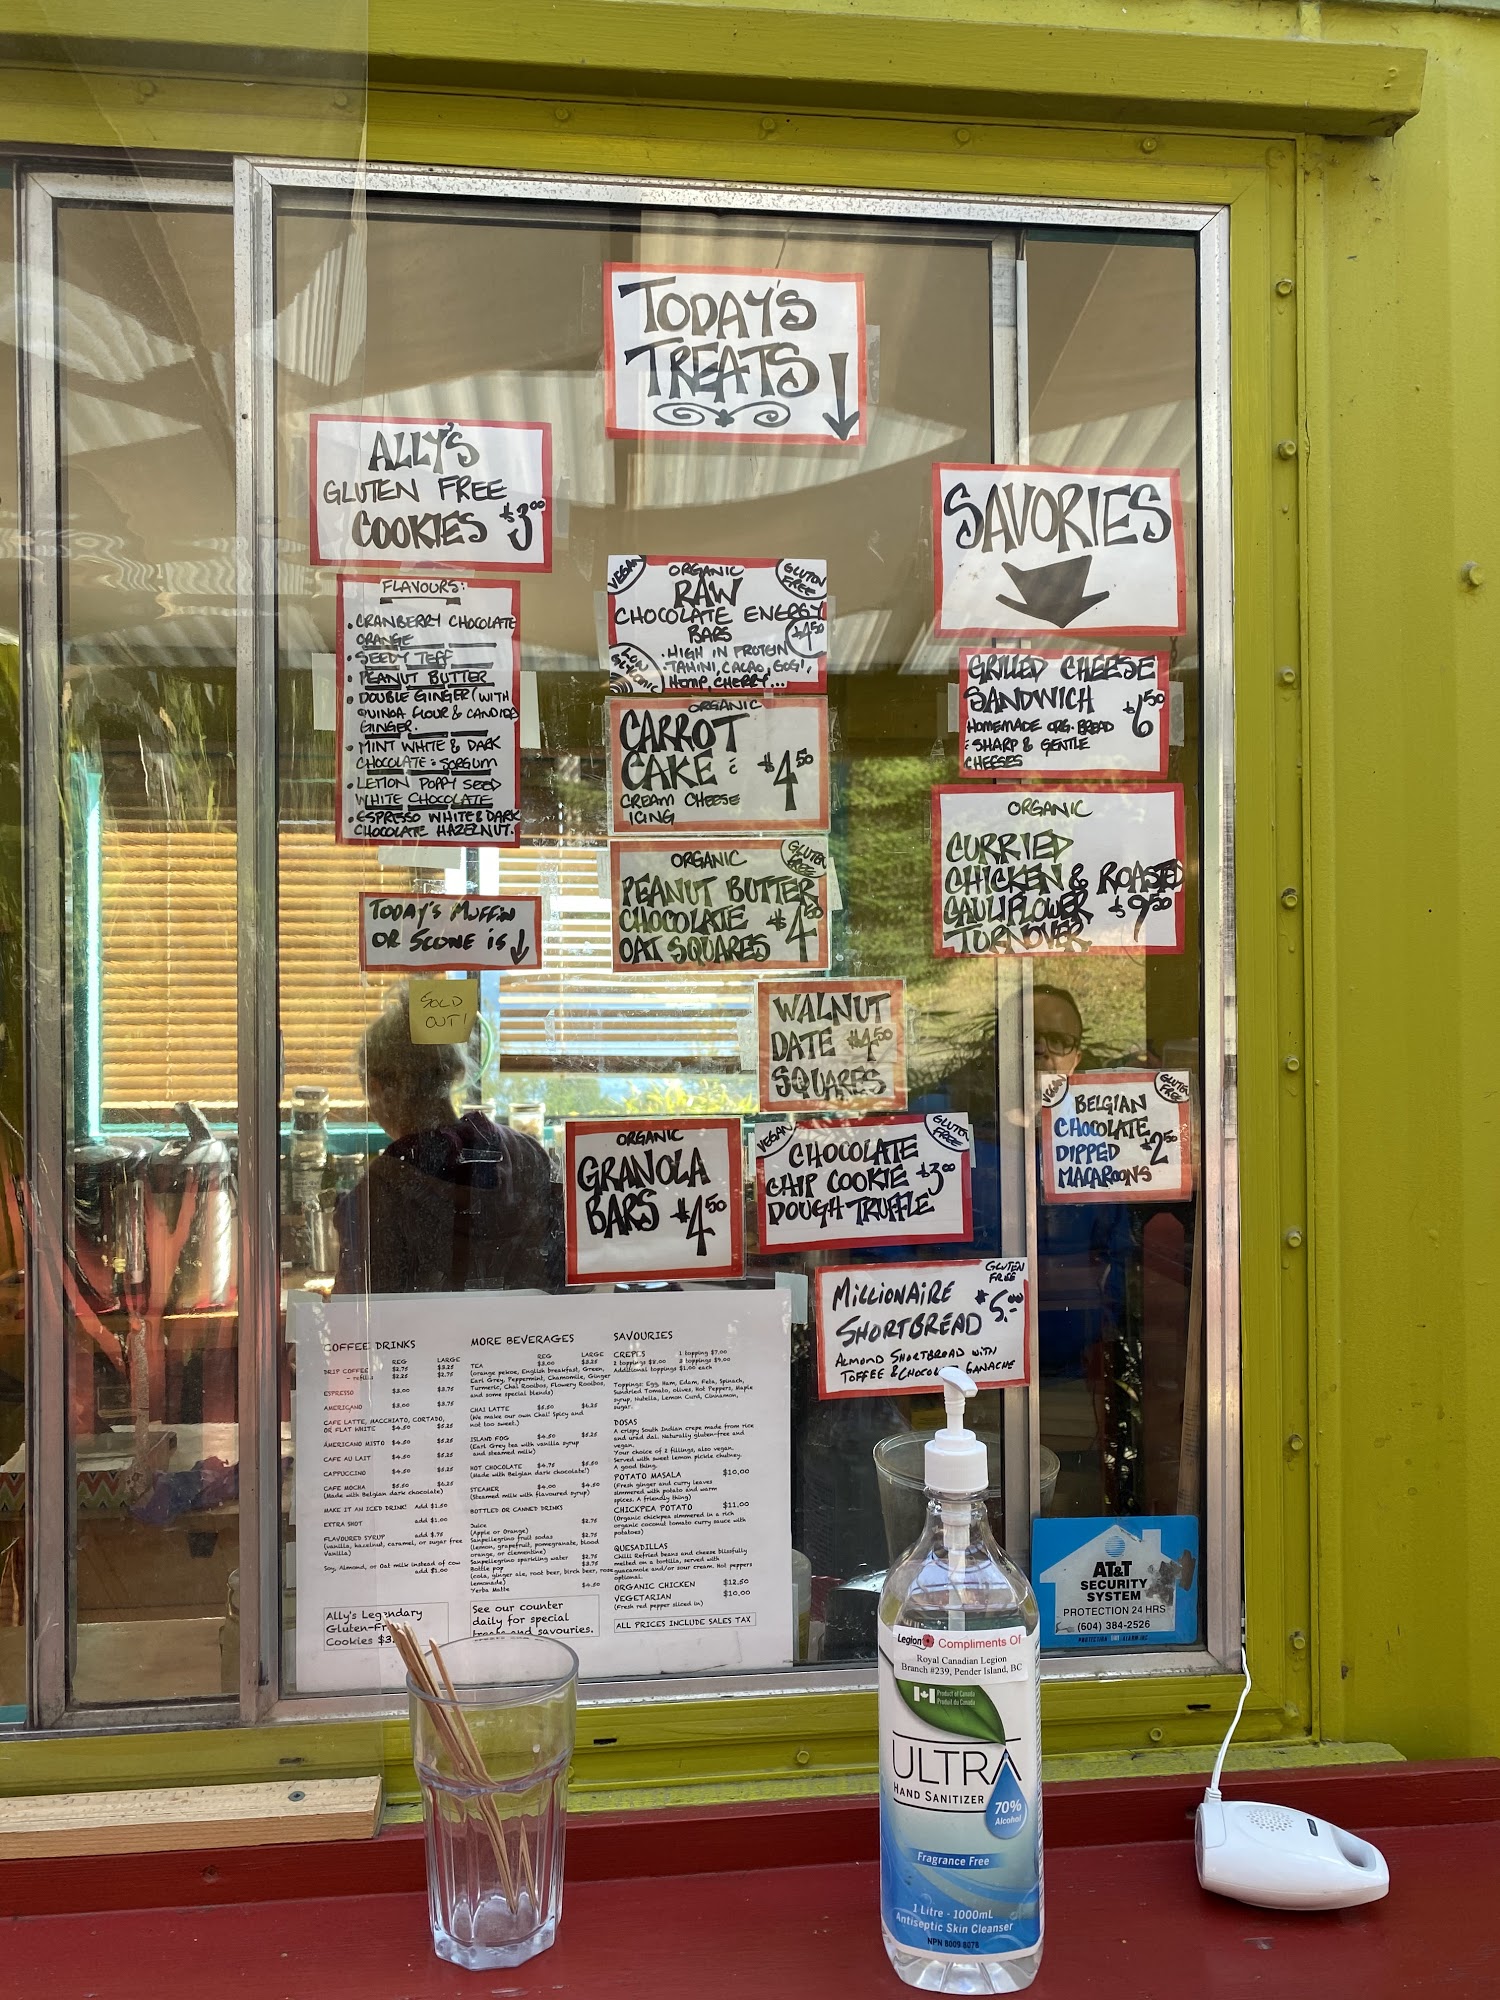 TODAY'S
TREATS
ALLY'S
GLUTEN FREE
COOKIES $3.00
FLAVOURS:
• CRANBERRY CHOCOLATE
ORANGE
• SEEDY TEFF
• PEANUT BUTTER
• DOUBLE GINGER (WITH
QUINOA FLOUR & CANDIED
GINGER.
• MINT WHITE & DARK
CHOCOLATE & SORGUM
• LEMON POPPY SEED
WHITE CHOCOLATE
• ESPRESSO WHITE & DARK
CHOCOLATE HAZELNUT.
TODAY'S MUFFIN
OR SCONE IS
SOLD
OUT!
VEGAN
GLUTEN
FREE
ORGANIC
RAW
CHOCOLATE ENERGY
BARS $4.50
• HIGH IN PROTEIN
• TAHINI, CACAO, GOGI,
HEMP, CHERRY...
LOW
GLYCEMIC
ORGANIC
CARROT
CAKE & $4.50
CREAM CHEESE
ICING
ORGANIC
GLUTEN
FREE
PEANUT BUTTER
CHOCOLATE $4.50
OAT SQUARES
WALNUT
DATE $4.50
SQUARES
ORGANIC
GRANOLA
BARS $4.50
VEGAN
GLUTEN
FREE
CHOCOLATE
CHIP COOKIE $3.00
DOUGH TRUFFLE
GLUTEN
FREE
MILLIONAIRE $5.00
SHORTBREAD
ALMOND SHORTBREAD WITH
TOFFEE & CHOCOLATE GANACHE
SAVORIES
GRILLED CHEESE
SANDWICH $6.50
HOMEMADE ORG. BREAD
& SHARP & GENTLE
CHEESES
ORGANIC
CURRIED
CHICKEN & ROASTED
CAULIFLOWER $9.50
TURNOVER
VEGAN
GLUTEN
FREE
BELGIAN
CHOCOLATE
DIPPED $2.50
MACAROONS
COFFEE DRINKS
REG LARGE
DRIP COFFEE $2.75 $3.25
- refills $2.25 $2.75
ESPRESSO $3.00 $3.75
AMERICANO $3.00 $3.75
CAFE LATTE, MACCHIATO, CORTADO,
OR FLAT WHITE $4.50 $5.25
AMERICANO MISTO $4.50 $5.25
CAFE AU LAIT $4.50 $5.25
CAPPUCCINO $4.50 $5.25
CAFE MOCHA $5.50 $6.25
(Made with Belgian dark chocolate)
MAKE IT AN ICED DRINK! add $1.50
EXTRA SHOT add $1.00
FLAVOURED SYRUP add $.75
(vanilla, hazelnut, caramel, or sugar free
Vanilla)
Soy, Almond, or Oat milk instead of cow
add $1.00
Ally's Legendary
Gluten-Fr
Cookies $3.
MORE BEVERAGES
REG LARGE
TEA $3.00 $3.25
(orange pekoe, English breakfast, Green,
Earl Grey, Peppermint, Chamomile, Ginger
Turmeric, Chai Rooibos, Flowery Rooibos,
and some special blends)
CHAI LATTE $5.50 $6.25
(We make our own Chai! Spicy and
not too sweet.)
ISLAND FOG $4.50 $5.25
(Earl Grey tea with vanilla syrup
and steamed milk)
HOT CHOCOLATE $4.75 $5.50
(Made with Belgian dark chocolate!)
STEAMER $4.00 $4.50
(Steamed milk with flavoured syrup)
BOTTLED OR CANNED DRINKS
Juice $2.75
(Apple or Orange)
Sanpellegrino fruit sodas $2.75
(lemon, grapefruit, pomegranate, blood
orange, or clementine)
Sanpellegrino sparkling water $2.75
Bottle pop $3.75
(cola, ginger ale, root beer, birch beer, rose
lemonade)
Yerba Matte $4.50
See our counter
daily for special
treats and savouries.
SAVOURIES
CREPES 1 topping $7.00
2 toppings $8.00 3 toppings $9.00
Additional toppings $1.00 each
Toppings: Egg, Ham, Edam, Feta, Spinach,
Sundried Tomato, olives, Hot Peppers, Maple
syrup, Nutella, Lemon Curd, Cinnamon,
sugar.
DOSAS
A crispy South Indian crepe made from rice
and urad dal. Naturally gluten-free and
vegan.
Your choice of 2 fillings, also vegan.
Served with sweet lemon pickle chutney.
A good thing.
POTATO MASALA $10.00
(Fresh ginger and curry leaves
simmered with potato and warm
spices. A friendly thing)
CHICKPEA POTATO $11.00
(Organic chickpea simmered in a rich
organic coconut tomato curry sauce with
potatoes)
QUESADILLAS
Chili Refried beans and cheese blissfully
melted on a tortilla, served with
guacamole and/or sour cream. Hot peppers
optional.
ORGANIC CHICKEN $12.50
VEGETARIAN $10.00
(Fresh red pepper sliced in)
ALL PRICES INCLUDE SALES TAX
AT&T
SECURITY
SYSTEM
PROTECTION 24 HRS
(604) 384-2526
Legion Compliments Of
Royal Canadian Legion
Branch #239, Pender Island, BC
Product of Canada
Produit du Canada
ULTRA
HAND SANITIZER
70%
Alcohol
Fragrance Free
1 Litre - 1000mL
Antiseptic Skin Cleanser
NPN 8009 8078